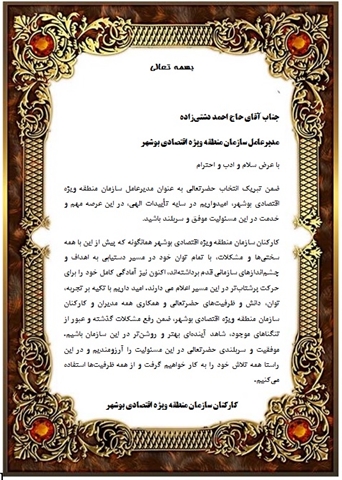 بسمه تعالی
جناب آقای حاج احمد دشتی‌زاده
مدیرعامل سازمان منطقه ویژه اقتصادی بوشهر
با عرض سلام و ادب و احترام
ضمن تبریک انتخاب حضرتعالی به عنوان مدیرعامل سازمان منطقه ویژه
اقتصادی بوشهر، امیدواریم در سایه تأییدات الهی، در این عرصه مهم و
خدمت در این مسئولیت موفق و سربلند باشید.
کارکنان سازمان منطقه ویژه اقتصادی بوشهر همانگونه که پیش از این با همه
سختی‌ها و مشکلات، با تمام توان خود در مسیر دستیابی به اهداف و
چشم‌اندازهای سازمانی قدم برداشته‌اند، اکنون نیز آمادگی کامل خود را برای
حرکت پرشتاب‌تر در این مسیر اعلام می دارند. امید داریم با تکیه بر تجربه،
توان، دانش و ظرفیت‌های حضرتعالی و همکاری همه مدیران و کارکنان
سازمان منطقه ویژه اقتصادی بوشهر، ضمن رفع مشکلات گذشته و عبور از
تنگناهای موجود، شاهد آینده‌ای بهتر و روشن‌تر در این سازمان باشیم.
موفقیت و سربلندی حضرتعالی در این مسئولیت را آرزومندیم و در این
راستا همه تلاش خود را به کار خواهیم گرفت و از همه ظرفیت‌ها استفاده
می‌کنیم.
کارکنان سازمان منطقه ویژه اقتصادی بوشهر